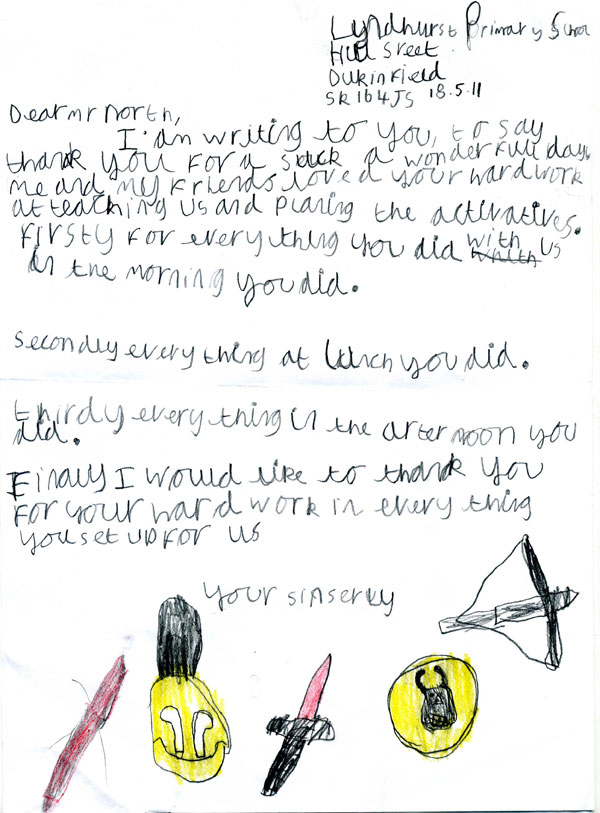 Lyndhurst Primary School
Hill Sreet.
Dukinfield
SK16 4JS 18.5.11
Dear mr north,
I'am writing to you, to say
thank you for a suck a wonderfull day.
me and my friends loved your hard work
at teaching us and planing the activatives.
Firstly for every thing you did with us
in the morning you did.
Secondly every thing at lunch you did.
thirdy every thing in the arter noon you
did.
Finaly I would like to thank you
for your hard work in every thing
you set up for us
Your sinserly